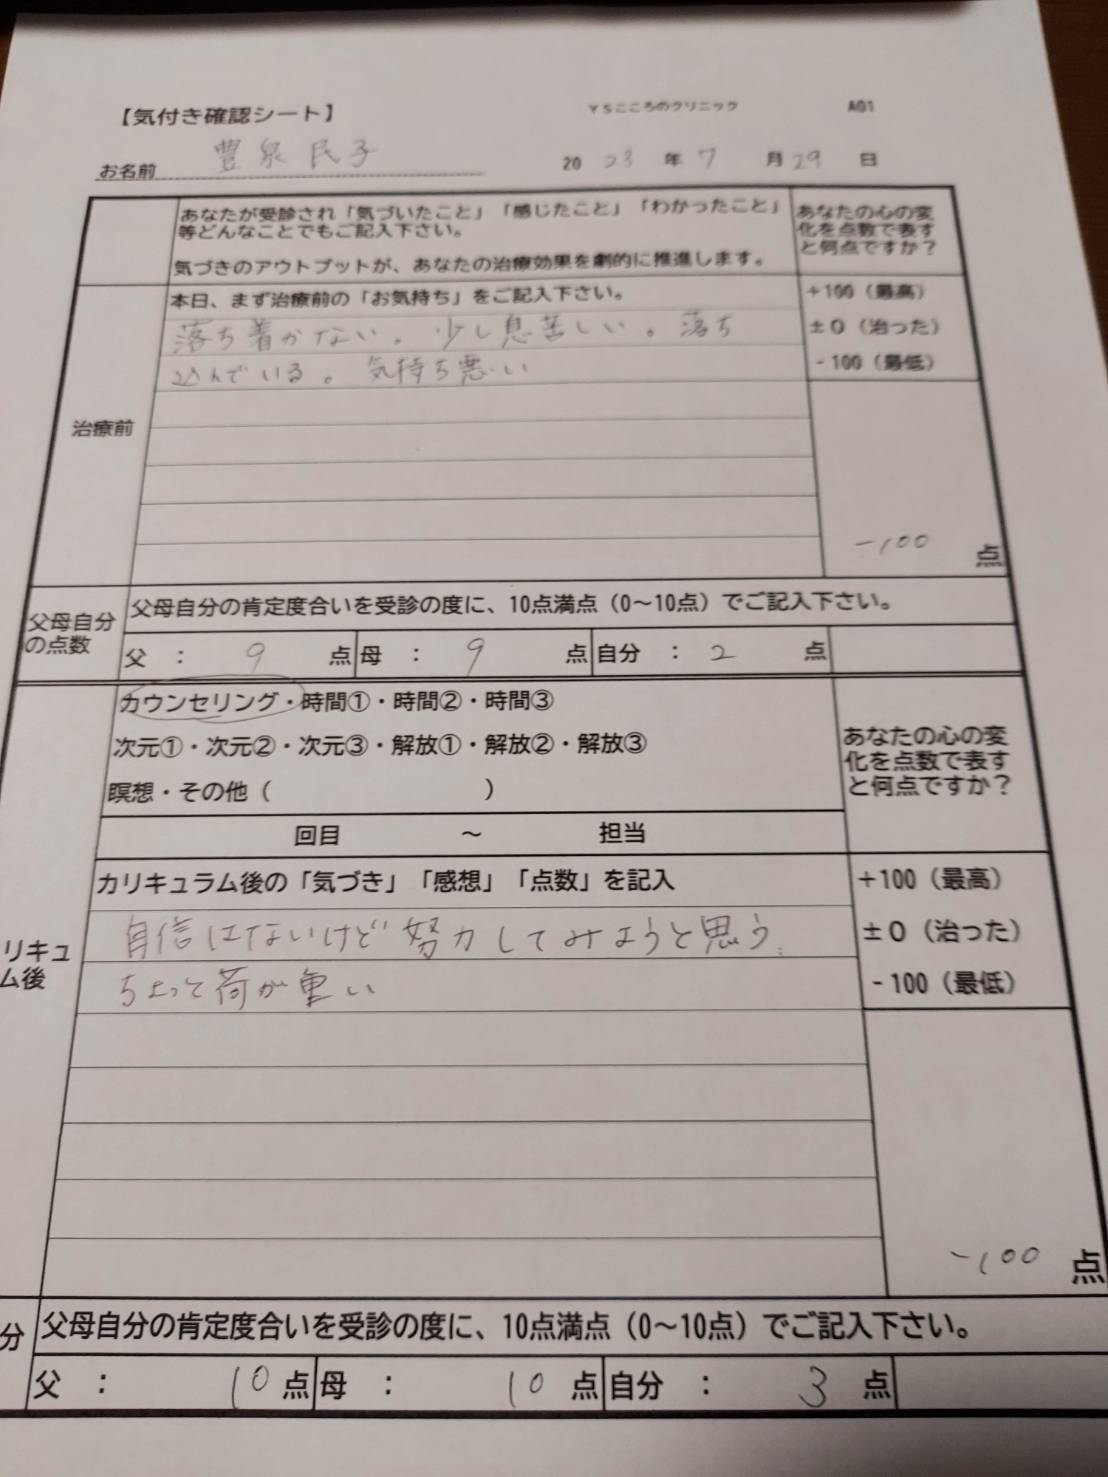 【気付き確認シート】 YSこころのクリニック A01
お名前 豊泉民子 2023年7月29日
あなたが受診され「気づいたこと」「感じたこと」「わかったこと」
等どんなことでもご記入下さい。
気づきのアウトプットが、あなたの治療効果を劇的に推進します。
あなたの心の変
化を点数で表す
と何点ですか？
治療前
本日、まず治療前の「お気持ち」をご記入下さい。
落ち着かない。少し息苦しい。落ち
込んでいる。気持ち悪い
+100（最高）
±0（治った）
-100（最低）
-100 点
父母自分
の点数
父母自分の肯定度合いを受診の度に、10点満点（0～10点）でご記入下さい。
父 ： 9 点 母 ： 9 点 自分 ： 2 点
カウンセリング・時間①・時間②・時間③
次元①・次元②・次元③・解放①・解放②・解放③
瞑想・その他（ ）
あなたの心の変
化を点数で表す
と何点ですか？
回目 ～ 担当
リキュ
ム後
カリキュラム後の「気づき」「感想」「点数」を記入
自信はないけど努力してみようと思う。
ちょっと荷が重い
+100（最高）
±0（治った）
-100（最低）
-100 点
分
父母自分の肯定度合いを受診の度に、10点満点（0～10点）でご記入下さい。
父 ： 10 点 母 ： 10 点 自分 ： 3 点